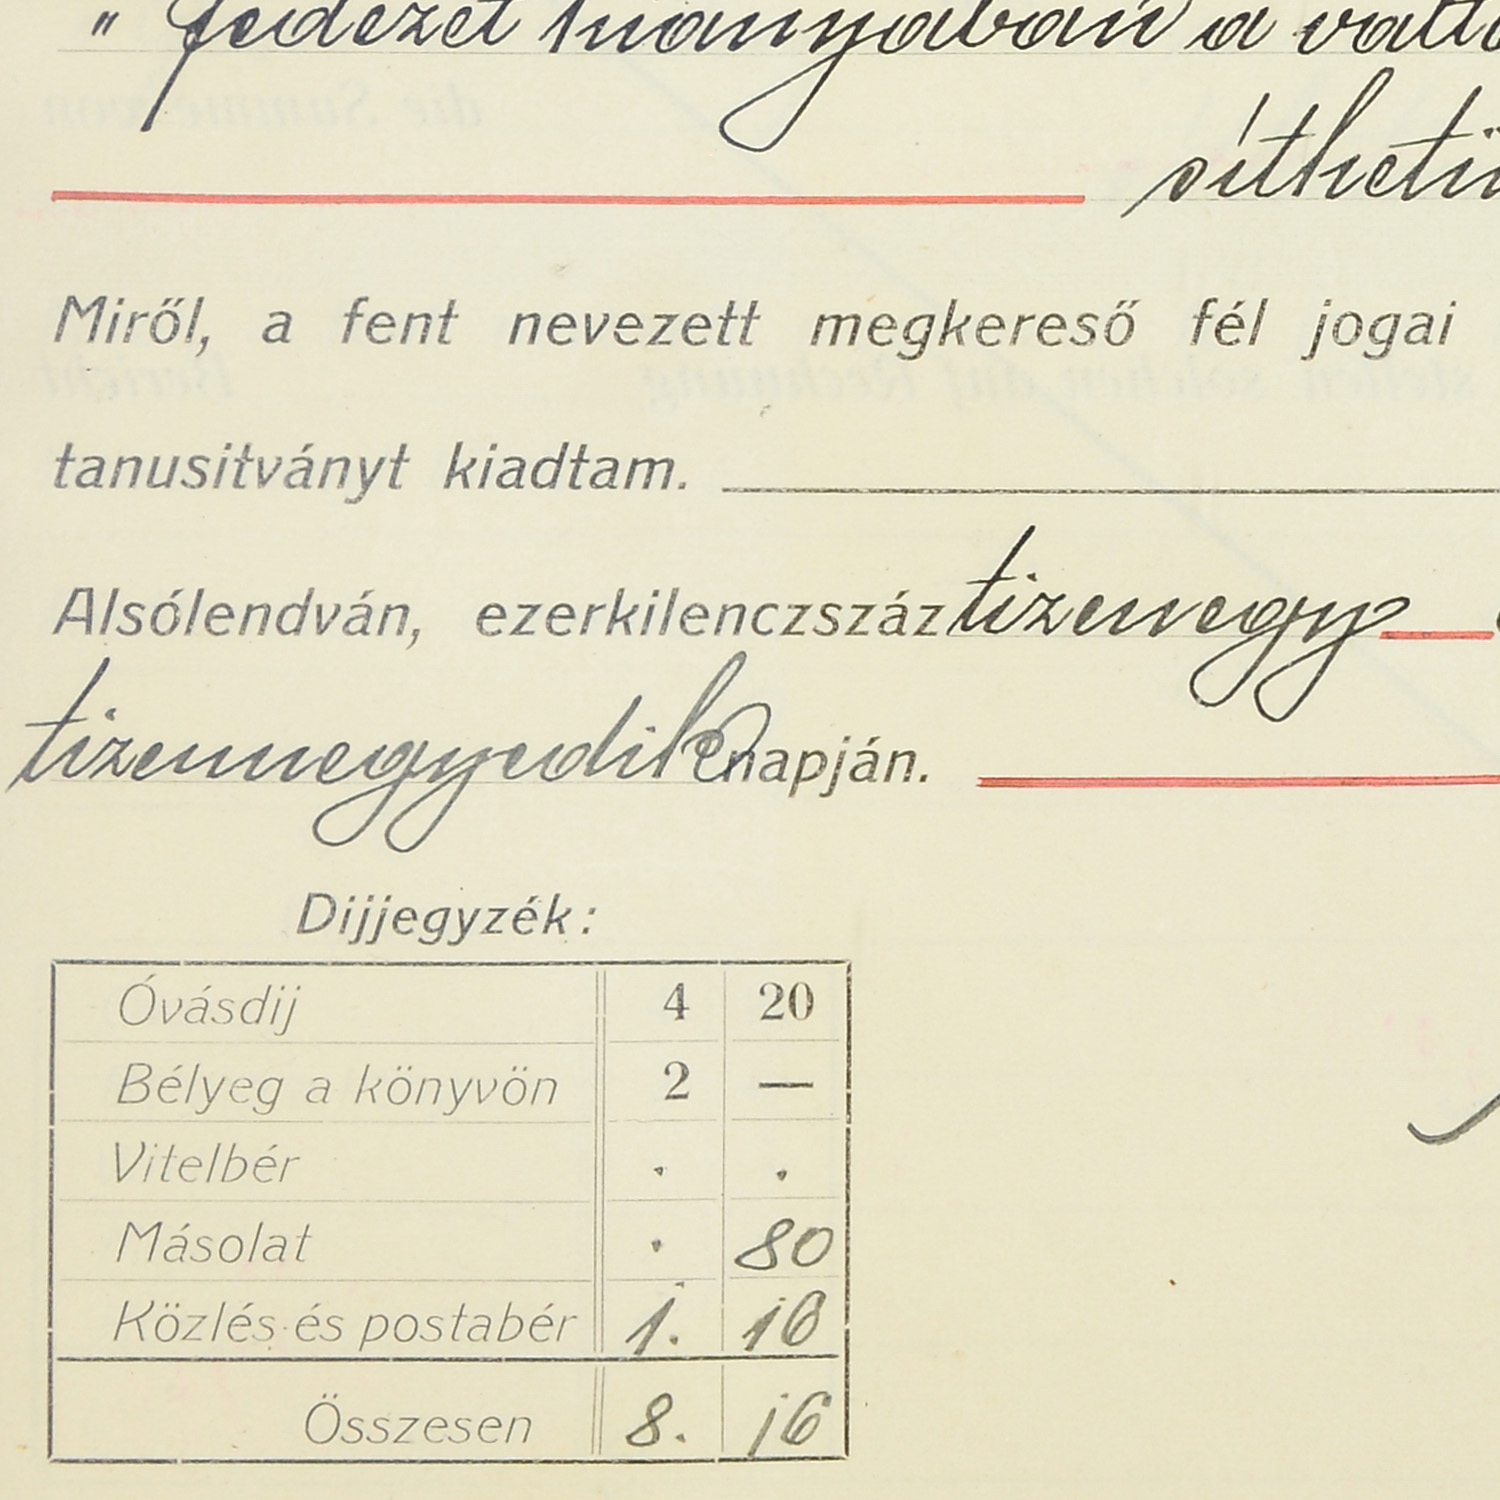 " fedezet hiányában a
síthetü
Miről, a fent nevezett megkereső fél jogai
tanusitványt kiadtam.
Alsólendván, ezerkilenczszáz tizenegy
tizennegyedik napján.
Dijjegyzék:
Óvásdij 4 20
Bélyeg a könyvön 2 —
Vitelbér . .
Másolat . 80
Közlés és postabér 1. 16
Összesen 8. 16